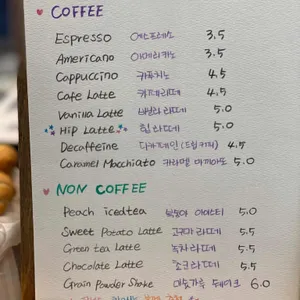 COFFEE
Espresso 에스프레소 3.5
Americano 아메리카노 3.5
Cappuccino 카푸치노 4.5
Cafe Latte 카페라떼 4.5
Vanilla Latte 바닐라 라떼 5.0
Hip Latte 힙 라떼 5.0
Decaffeine 디카페인 (드립커피) 4.5
Caramel Macchiato 카라멜 마끼아또 5.0
NON COFFEE
Peach icedtea 복숭아 아이스티 5.0
Sweet Potato Latte 고구마 라떼 5.5
Green tea Latte 녹차 라떼 5.5
Chocolate Latte 초코 라떼 5.5
Grain Powder Shake 미숫가루 쉐이크 6.0